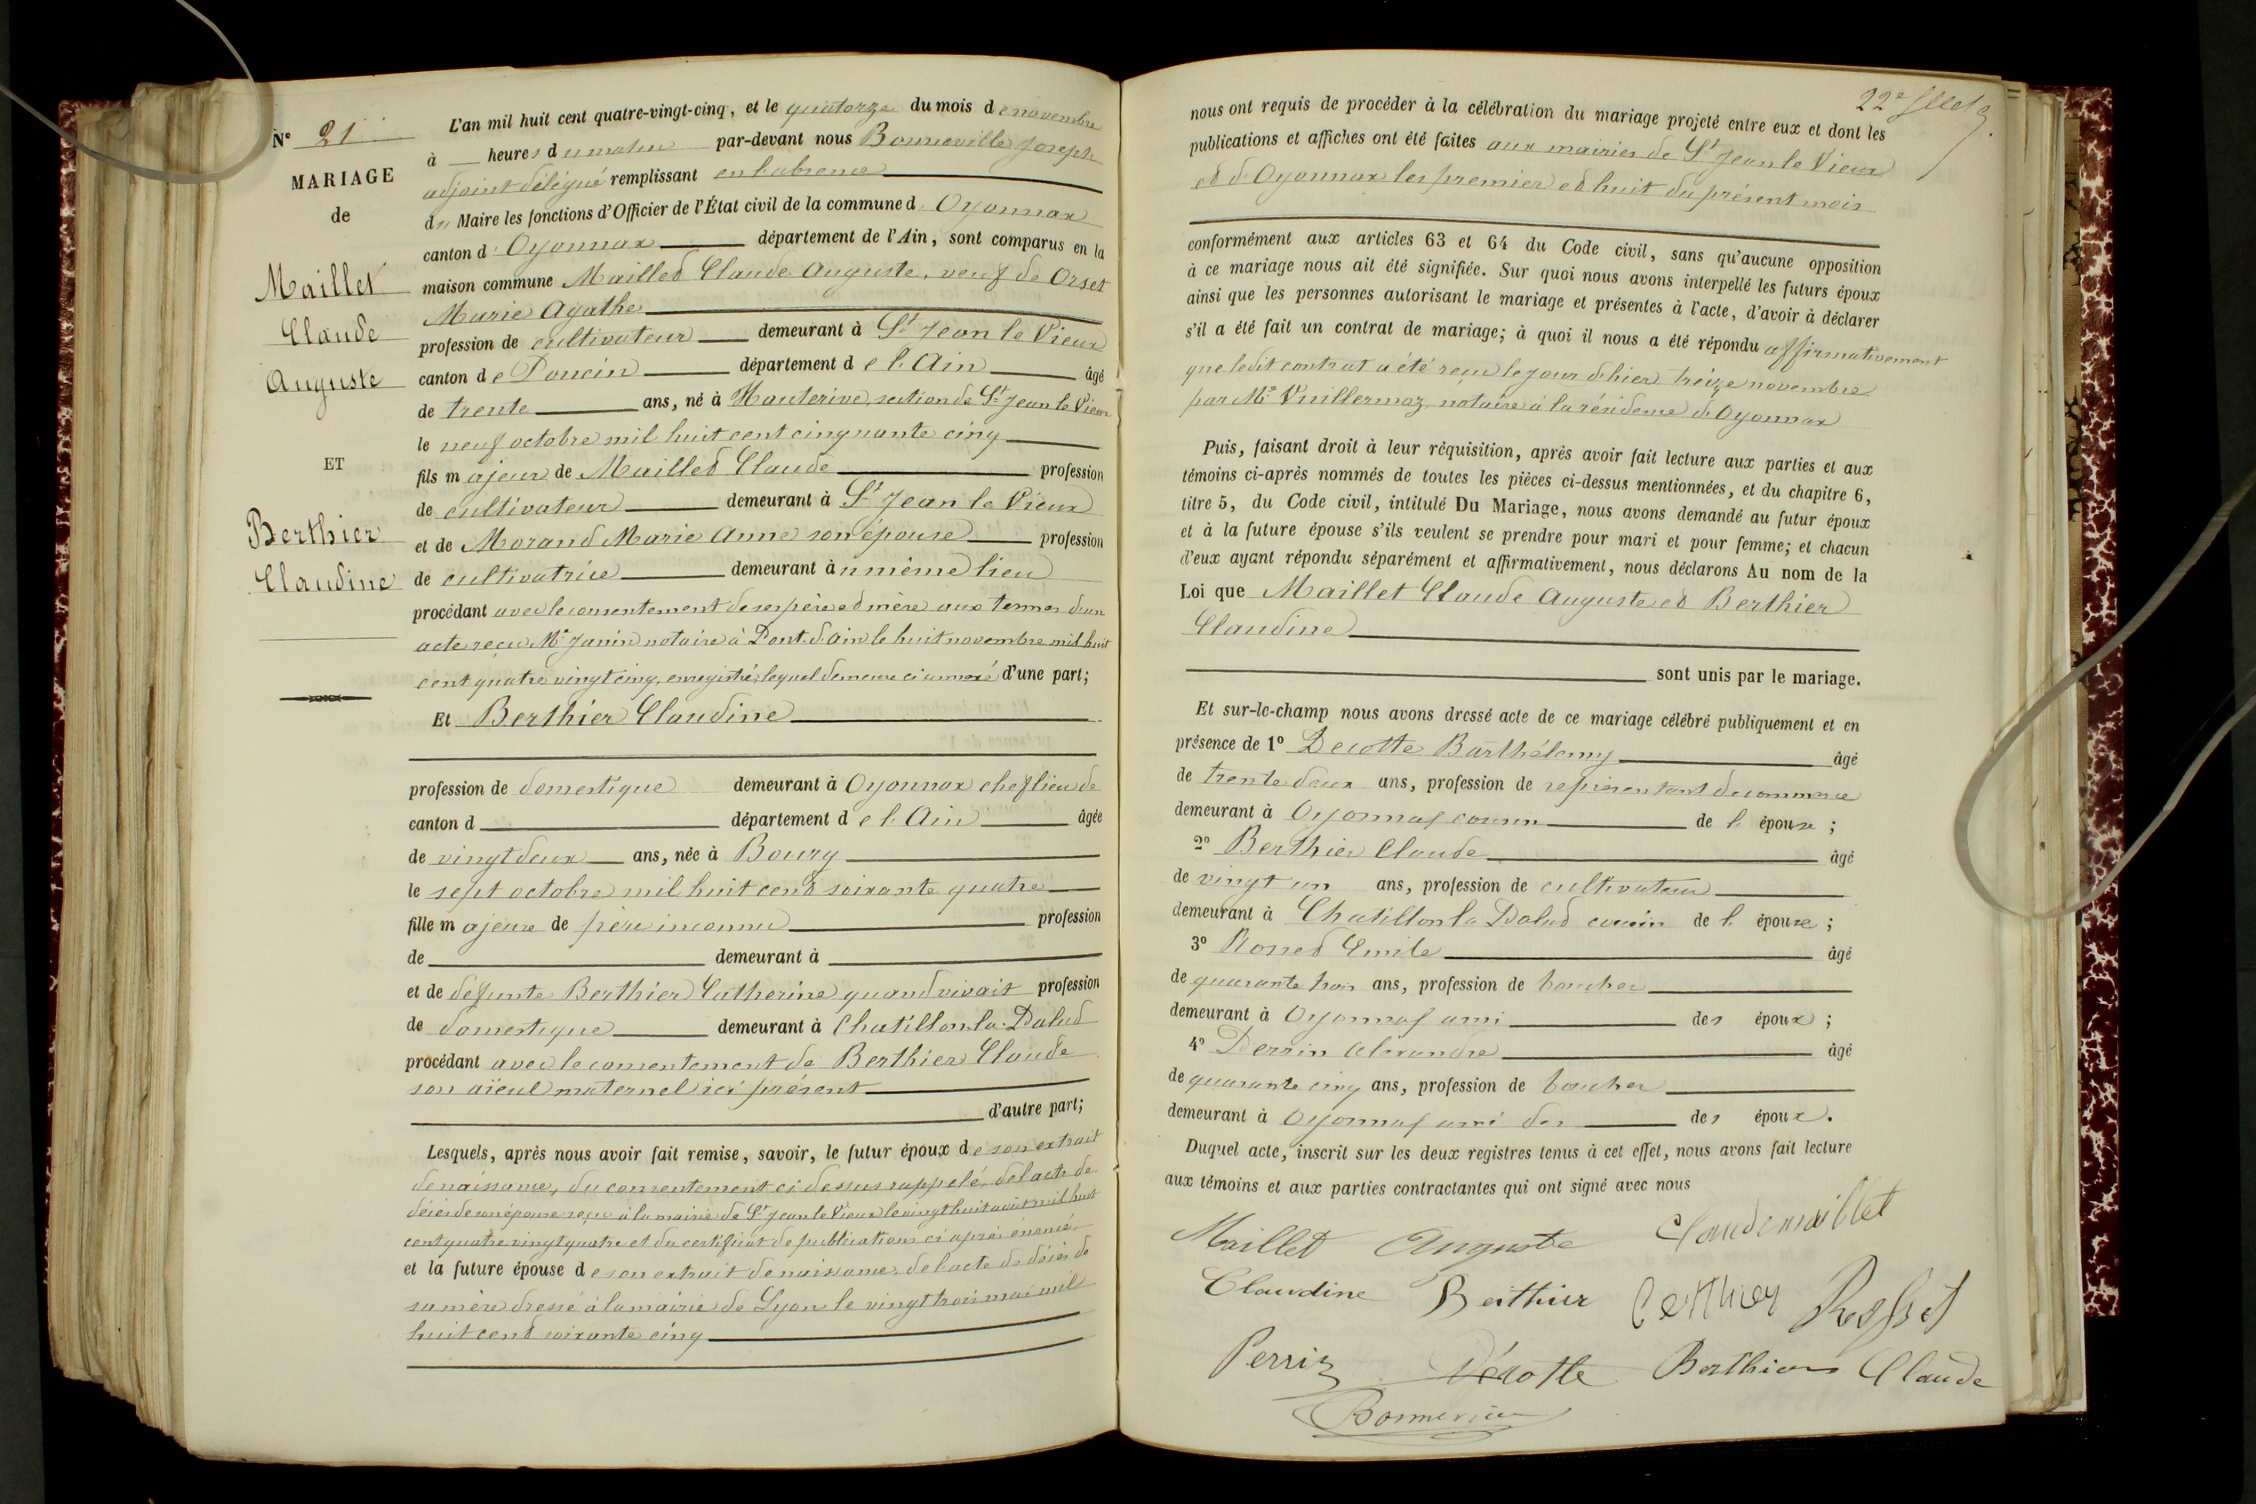 N° 21
MARIAGE
de
Maillet
Claude
Auguste
ET
Berthier
Claudine
L'an mil huit cent quatre-vingt-cinq, et le quatorze du mois de novembre
à heures du matin par-devant nous Bonneville Joseph
adjoint délégué remplissant en l'absence
du Maire les fonctions d'Officier de l'État civil de la commune d'Oyonnax
canton d'Oyonnax département de l'Ain, sont comparus en la
maison commune Maillet Claude Auguste, veuf de Orset
Marie Agathe
profession de cultivateur demeurant à St Jean le Vieux
canton de Poncin département de l'Ain âgé
de trente ans, né à Hauterive, section de St Jean le Vieux
le neuf octobre mil huit cent cinquante cinq
fils majeur de Maillet Claude profession
de cultivateur demeurant à St Jean le Vieux
et de Morand Marie Anne son épouse profession
de cultivatrice demeurant au même lieu
procédant avec le consentement de ses père et mère aux termes d'un
acte reçu Me Janin notaire à Pont d'Ain le huit novembre mil huit
cent quatre vingt cinq, enregistré, lequel demeure ci annexé d'une part;
Et Berthier Claudine
profession de domestique demeurant à Oyonnax chef lieu de
canton d département de l'Ain âgée
de vingt deux ans, née à Bourg
le sept octobre mil huit cent soixante quatre
fille majeure de père inconnu profession
de demeurant à
et de defunte Berthier Catherine quand vivait profession
de domestique demeurant à Chatillon la Palud
procédant avec le consentement de Berthier Claude
son aïeul maternel ici présent
d'autre part;
Lesquels, après nous avoir fait remise, savoir, le futur époux de son extrait
de naissance, du consentement ci dessus rappelé, de l'acte de
décès de son épouse reçu à la mairie de St Jean le Vieux le vingt huit août mil huit
cent quatre vingt quatre et du certificat de publications ci après énoncé
et la future épouse de son extrait de naissance, de l'acte de décès de
sa mère dressé à la mairie de Lyon le vingt trois mai mil
huit cent soixante cinq
22e fllet
nous ont requis de procéder à la célébration du mariage projeté entre eux et dont les
publications et affiches ont été faites aux mairies de St Jean le Vieux
et d'Oyonnax les premier et huit du présent mois
conformément aux articles 63 et 64 du Code civil, sans qu'aucune opposition
à ce mariage nous ait été signifiée. Sur quoi nous avons interpellé les futurs époux
ainsi que les personnes autorisant le mariage et présentes à l'acte, d'avoir à déclarer
s'il a été fait un contrat de mariage; à quoi il nous a été répondu affirmativement
que ledit contrat a été reçu le jour d'hier treize novembre
par Me Vuillermoz notaire à la résidence d'Oyonnax
Puis, faisant droit à leur réquisition, après avoir fait lecture aux parties et aux
témoins ci-après nommés de toutes les pièces ci-dessus mentionnées, et du chapitre 6,
titre 5, du Code civil, intitulé Du Mariage, nous avons demandé au futur époux
et à la future épouse s'ils veulent se prendre pour mari et pour femme; et chacun
d'eux ayant répondu séparément et affirmativement, nous déclarons Au nom de la
Loi que Maillet Claude Auguste et Berthier
Claudine
sont unis par le mariage.
Et sur-le-champ nous avons dressé acte de ce mariage célébré publiquement et en
présence de 1° Decotte Barthélemy âgé
de trente deux ans, profession de représentant de commerce
demeurant à Oyonnax cousin de l'épouse;
2° Berthier Claude âgé
de vingt un ans, profession de cultivateur
demeurant à Chatillon la Palud cousin de l'épouse;
3° Rosset Emile âgé
de quarante trois ans, profession de boucher
demeurant à Oyonnax ami des époux;
4° Perrin Alexandre âgé
de quarante cinq ans, profession de boucher
demeurant à Oyonnax ami des des époux.
Duquel acte, inscrit sur les deux registres tenus à cet effet, nous avons fait lecture
aux témoins et aux parties contractantes qui ont signé avec nous
Maillet Auguste Claude maillet
Claudine Berthier Berthier Rosset
Perrin Décotte Berthier Claude
Bonneville